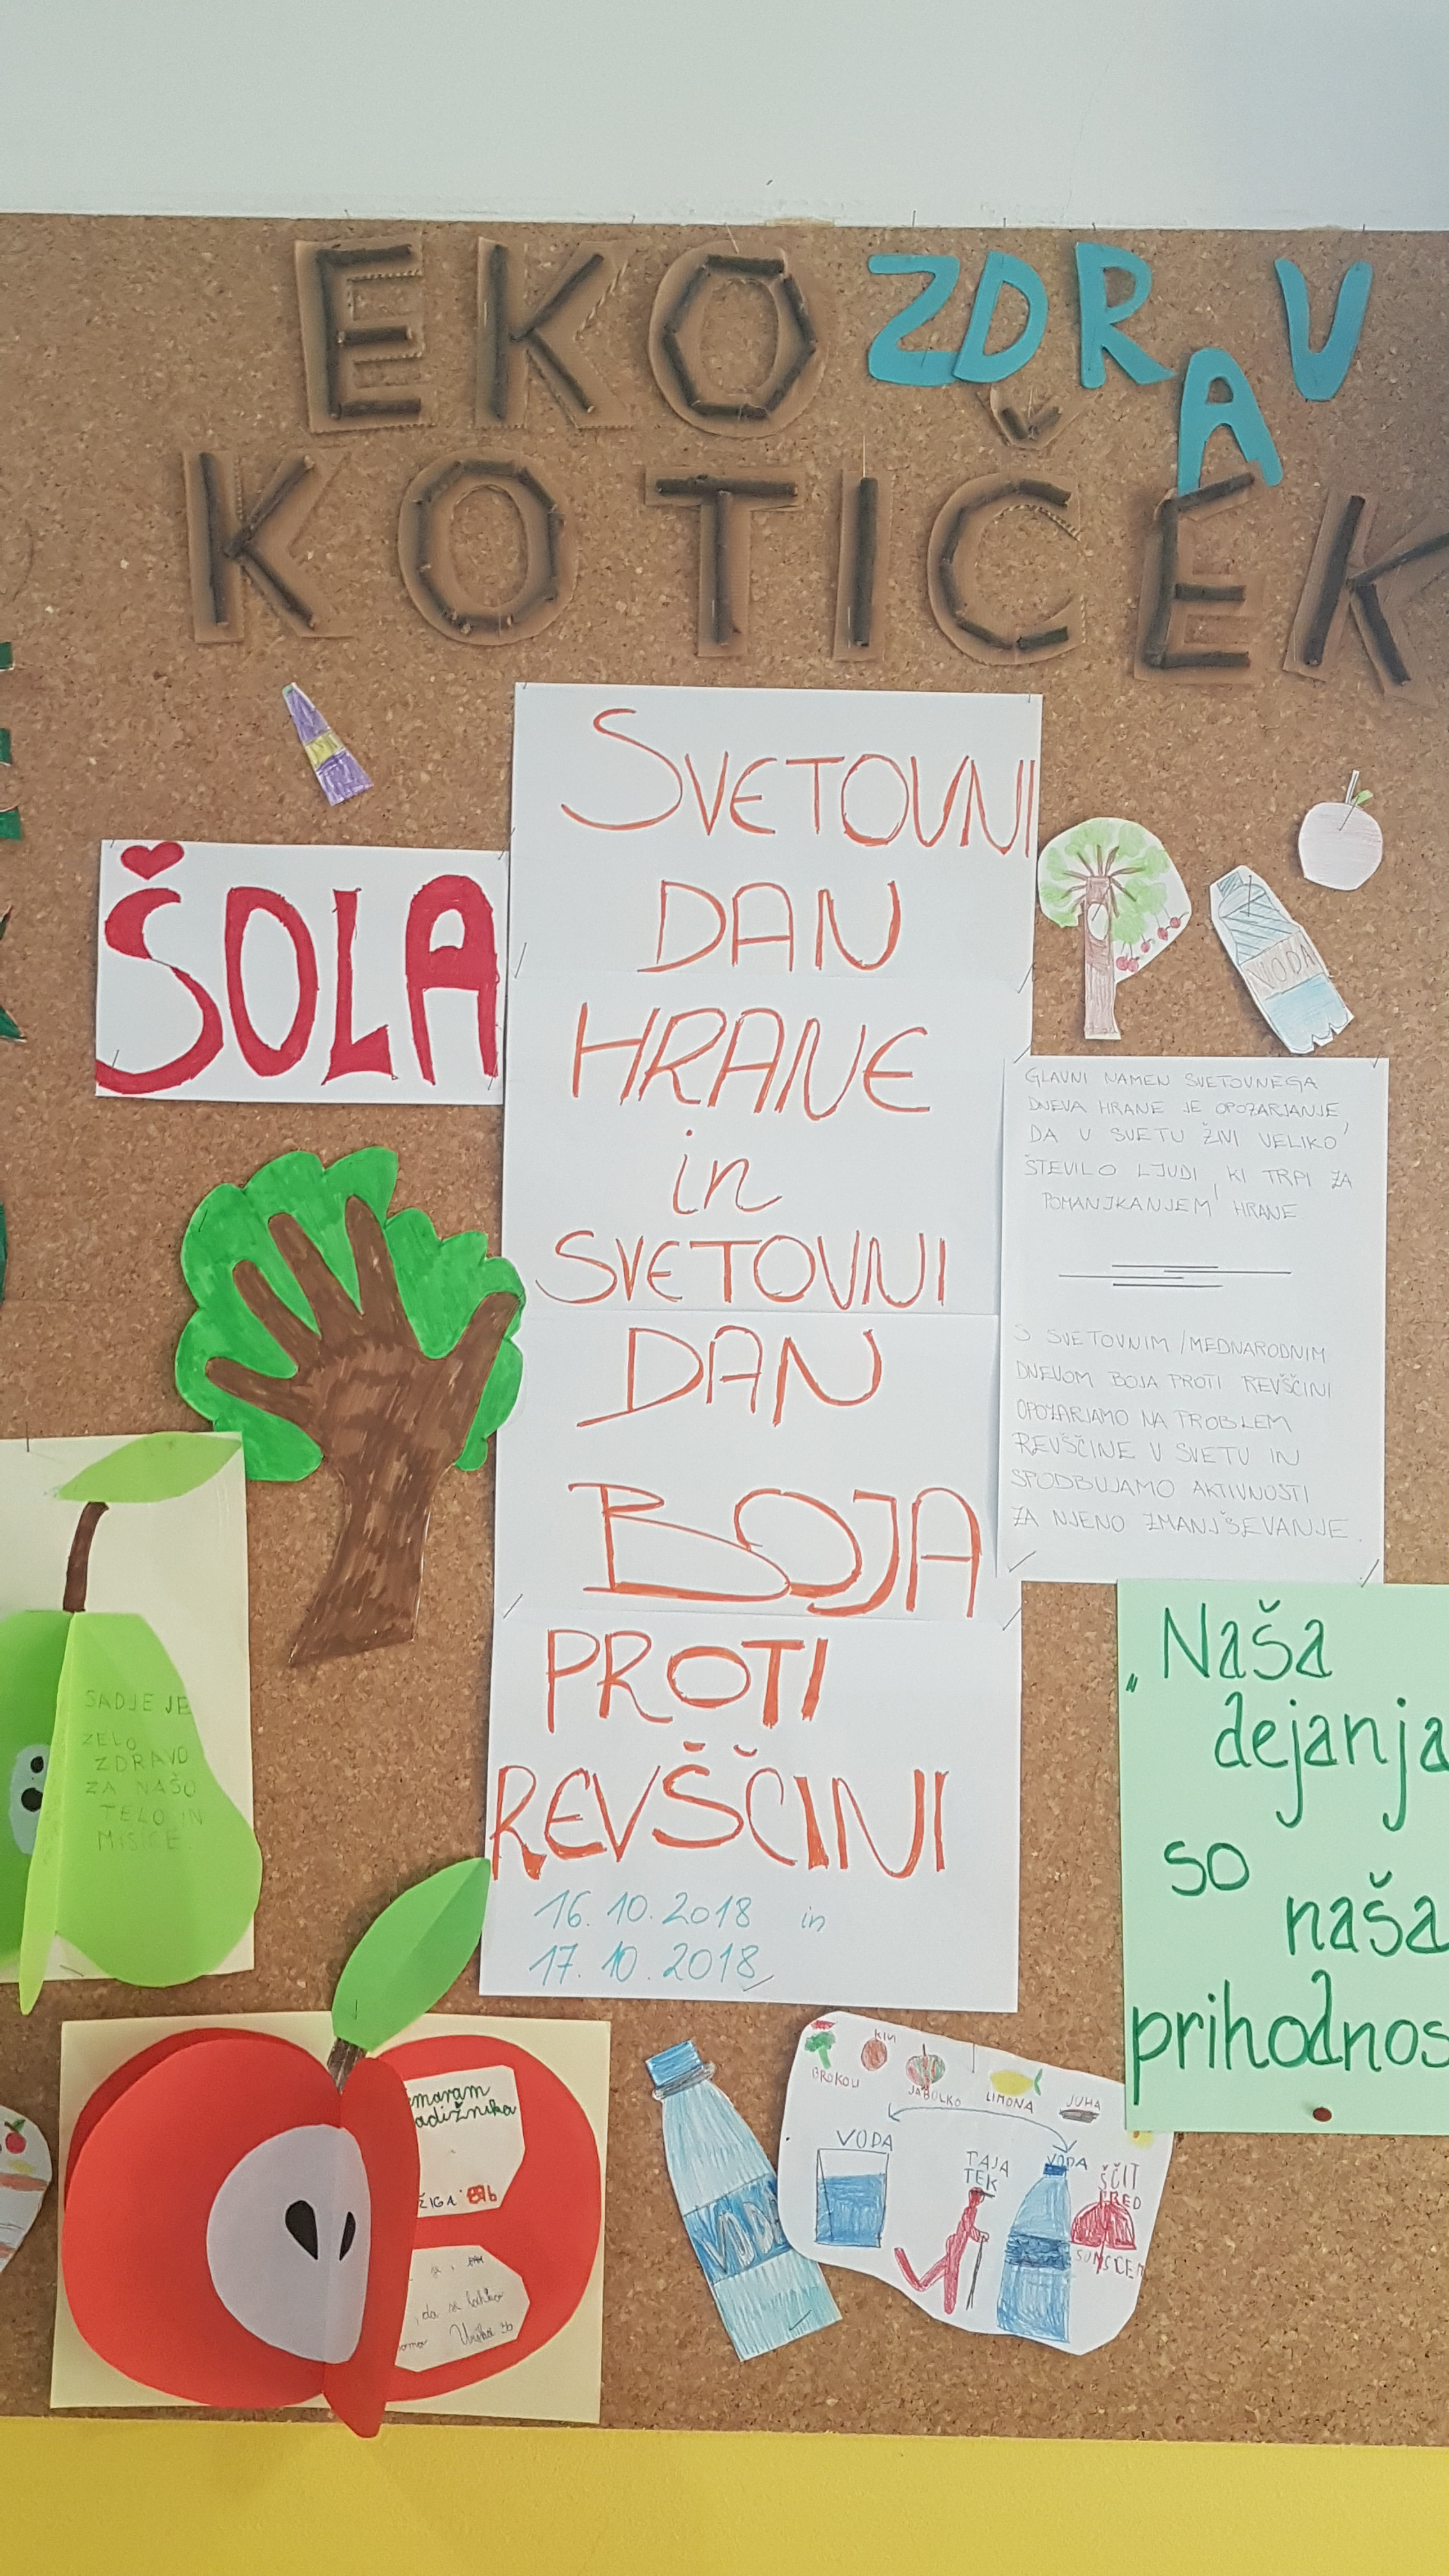 EKO ZDRAV
KOTIČEK
ŠOLA
SVETOVNI
DAN
HRANE
in
SVETOVNI
DAN
BOJA
PROTI
REVŠČINI
16.10.2018 in
17.10.2018
VODA
GLAVNI NAMEN SVETOVNEGA
DNEVA HRANE JE OPOZARJANJE,
DA V SVETU ŽIVI VELIKO
ŠTEVILO LJUDI, KI TRPI ZA
POMANJKANJEM HRANE
S SVETOVNIM/MEDNARODNIM
DNEVOM BOJA PROTI REVŠČINI
OPOZARJAMO NA PROBLEM
REVŠČINE V SVETU IN
SPODBUJAMO AKTIVNOSTI
ZA NJENO ZMANJŠEVANJE.
„Naša
dejanja
so
naša
prihodnos
SADJE JE
ZELO
ZDRAVO
ZA NAŠO
TELO IN
MIŠICE
maram
adižnika
ŽIGA
, da se lahko
VODA
BROKOLI
KIVI
JABOLKO
LIMONA
JUHA
VODA
TAJA
TEK
VODA
ŠČIT
PRED